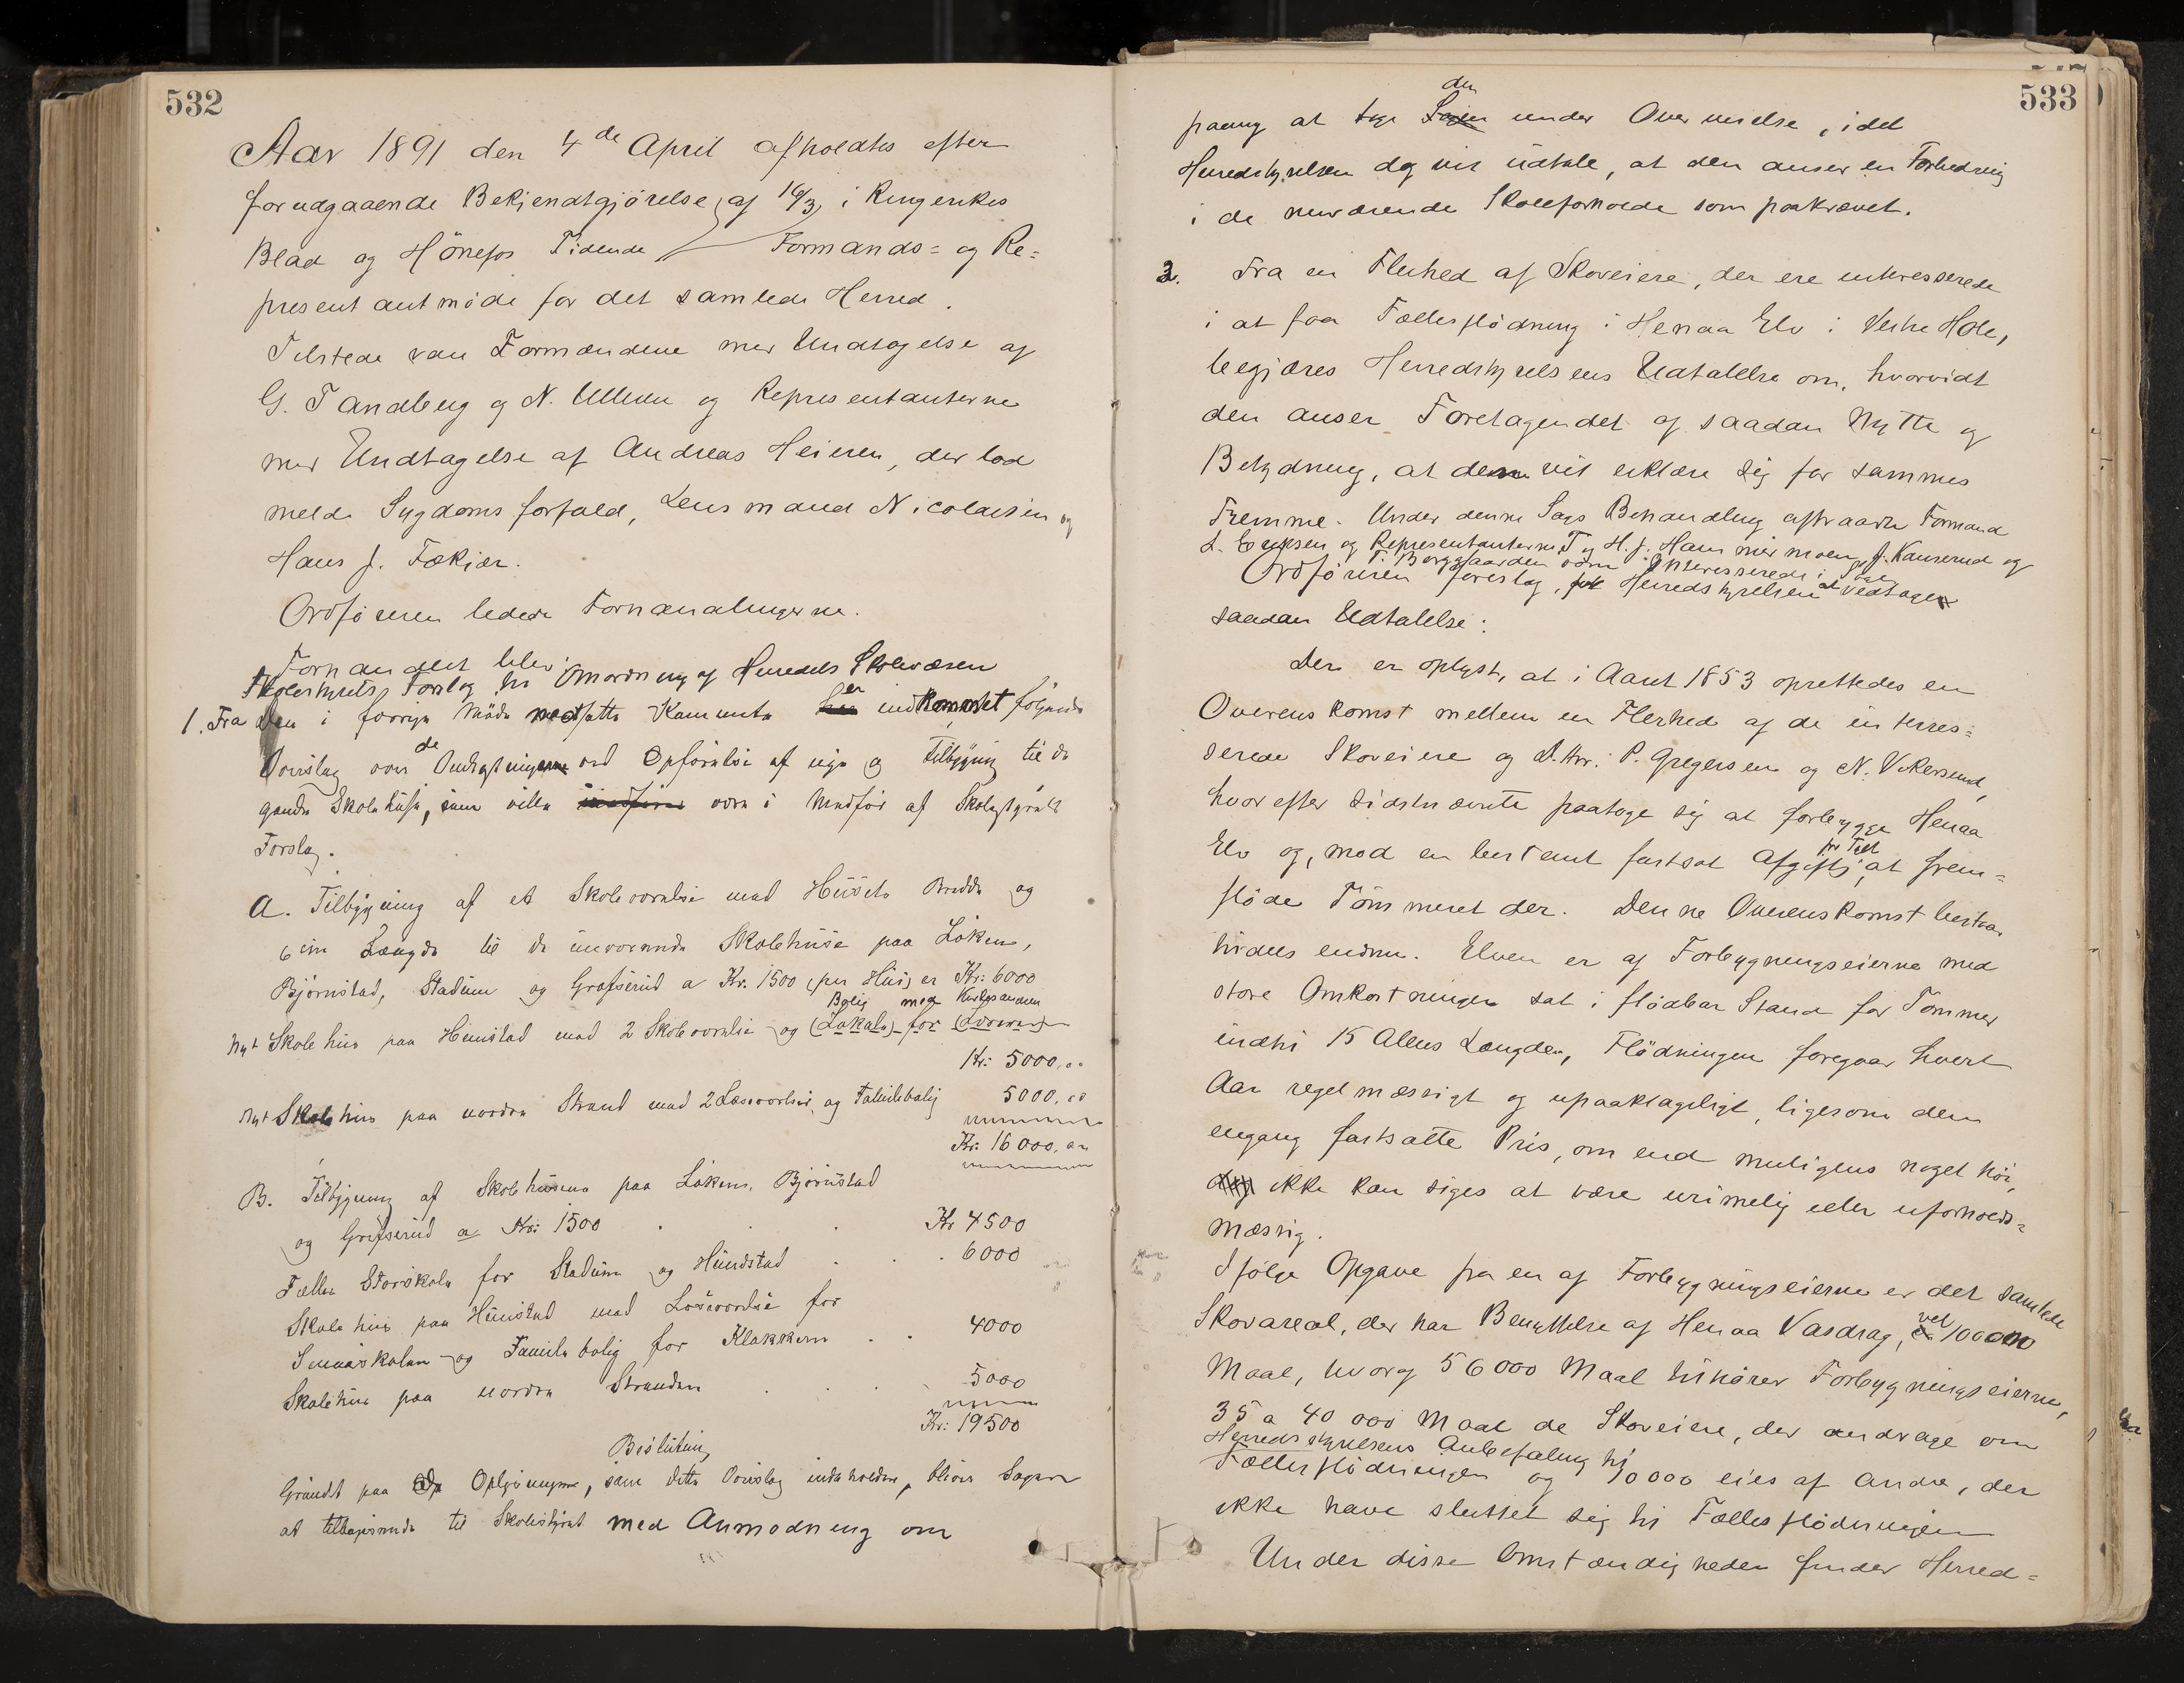 532
Aar 1891 den 4de April afholdtes efter
forudgaaende Bekjendtgjörelse, af 16/3, i Ringerikes
Blad og Hönefos Tidende Formands= og Re=
presentantmöde for det samlede Herred.
Tilstede var Formændene med Undtagelse af
G. Tandberg og N. Ullern og Representanterne
med Undtagelse af Andreas Heieren, der lod
melde Sygdoms forfald, Lensmand Nicolaisen og
Hans J. Fækjær.
Ordföreren ledede Forhandlingerne.
Forhandlet blev:
Skolestyrets Forslag til Omordning af Herredets Skolevæsen
1. Fra den i forrige Möde nedsatte Kommite er indkommet fölgende
Overslag over de Omkostninger ved Opförelse af nye og Tilbygning til de
gamle Skolehuse, som ville være i Medför af Skolestyrets
Forslag.
A. Tilbygning af et Skoleværelse med Husets Bredde og
6 m Længde til de nuværende Skolehuse paa Löken,
Björnstad, Stadum og Grøfserud a Kr. 1500 per Hus er Kr: 6000
Bolig med
Nyt Skolehus paa Hunstad med 2 Skoleværelser og (Lokale) for (Læreren)
Kr: 5000,00
Nyt Skolehus paa nordre Strand med 2 Læseværelser og Familiebolig 5000,00
Kr: 16000,00
B. Tilbygning af Skolehusene paa Löken, Björnstad
og Grøfserud a Kr: 1500 . . . Kr 4500
Fælles Storskole for Stadum og Hundstad . . . 6000
Skolehus paa Hunstad med Læseværelse for
Smaaskolen og Familiebolig for Klokkeren . . 4000
Skolehus paa nordre Stranden . . . 5000
Kr: 19500
Beslutning
Grundet paa de Oplysninger, som dette Overslag indeholder, bliver Sagen
at tilbagesende til Skolestyret med Anmodning om
533
paany at tage den under Overveielse, idet
Herredstyrelsen dog vil udtale, at den anser en Forbedring
i de nuværende Skoleforholde som paakrævet.
2. Fra en Flerhed af Skoveiere, der ere interesserede
i at faa Fællesflödning i Henaa Elv i Vestre Hole,
begjæres Herredstyrelsens Udtalelse om, hvorvidt
den anser Foretagendet af saadan Nytte og
Betydning, at den vil erklære sig for sammes
Fremme. Under denne Sags Behandling aftraadte Formand
L. Eriksen og Representanterne T. og H. J. Hammermoen, J. Kauserud og
T. Borggaarden som Interesserede i Sagen
Ordföreren foreslog, at Herredstyrelsen vedtager
saadan Udtalelse:
Der er oplyst, at i Aaret 1853 oprettedes en
Overenskomst mellem en Flerhed af de interes=
serede Skoveiere og D.Hrr. P. Gregersen og N. Vikersund,
hvorefter sidstnævnte paatoge sig at forbygge Henaa
Elv og, mod en bestemt fastsat Afgift pr Tylt, at frem=
flöde Tömmeret der. Denne Overenskomst bestaar
tildels endnu. Elven er af Forbygningseierne med
store Omkostninger sat i flödbar Stand for Tömmer
indtil 15 Alens Længde, Flödningen foregaar hvert
Aar regelmæssigt og upaaklageligt, ligesom den
engang fastsatte Pris, om end muligens noget höi,
ikke kan siges at være urimelig eller uforholds=
mæssig.
Ifölge Opgave fra en af Forbygningseierne er det samlede
Skovareal, der har Benyttelse af Henaa Vasdrag, vel 100000
Maal, hvoraf 56000 Maal tilhører Forbygningseierne,
35 a 40 000 Maal de Skoveiere, der andrage om
Herredsstyrelsens Anbefaling til
Fællesflödningen og 10000 eies af Andre, der
ikke have sluttet sig til Fællesflödningen
Under disse Omstændigheder finder Herred=